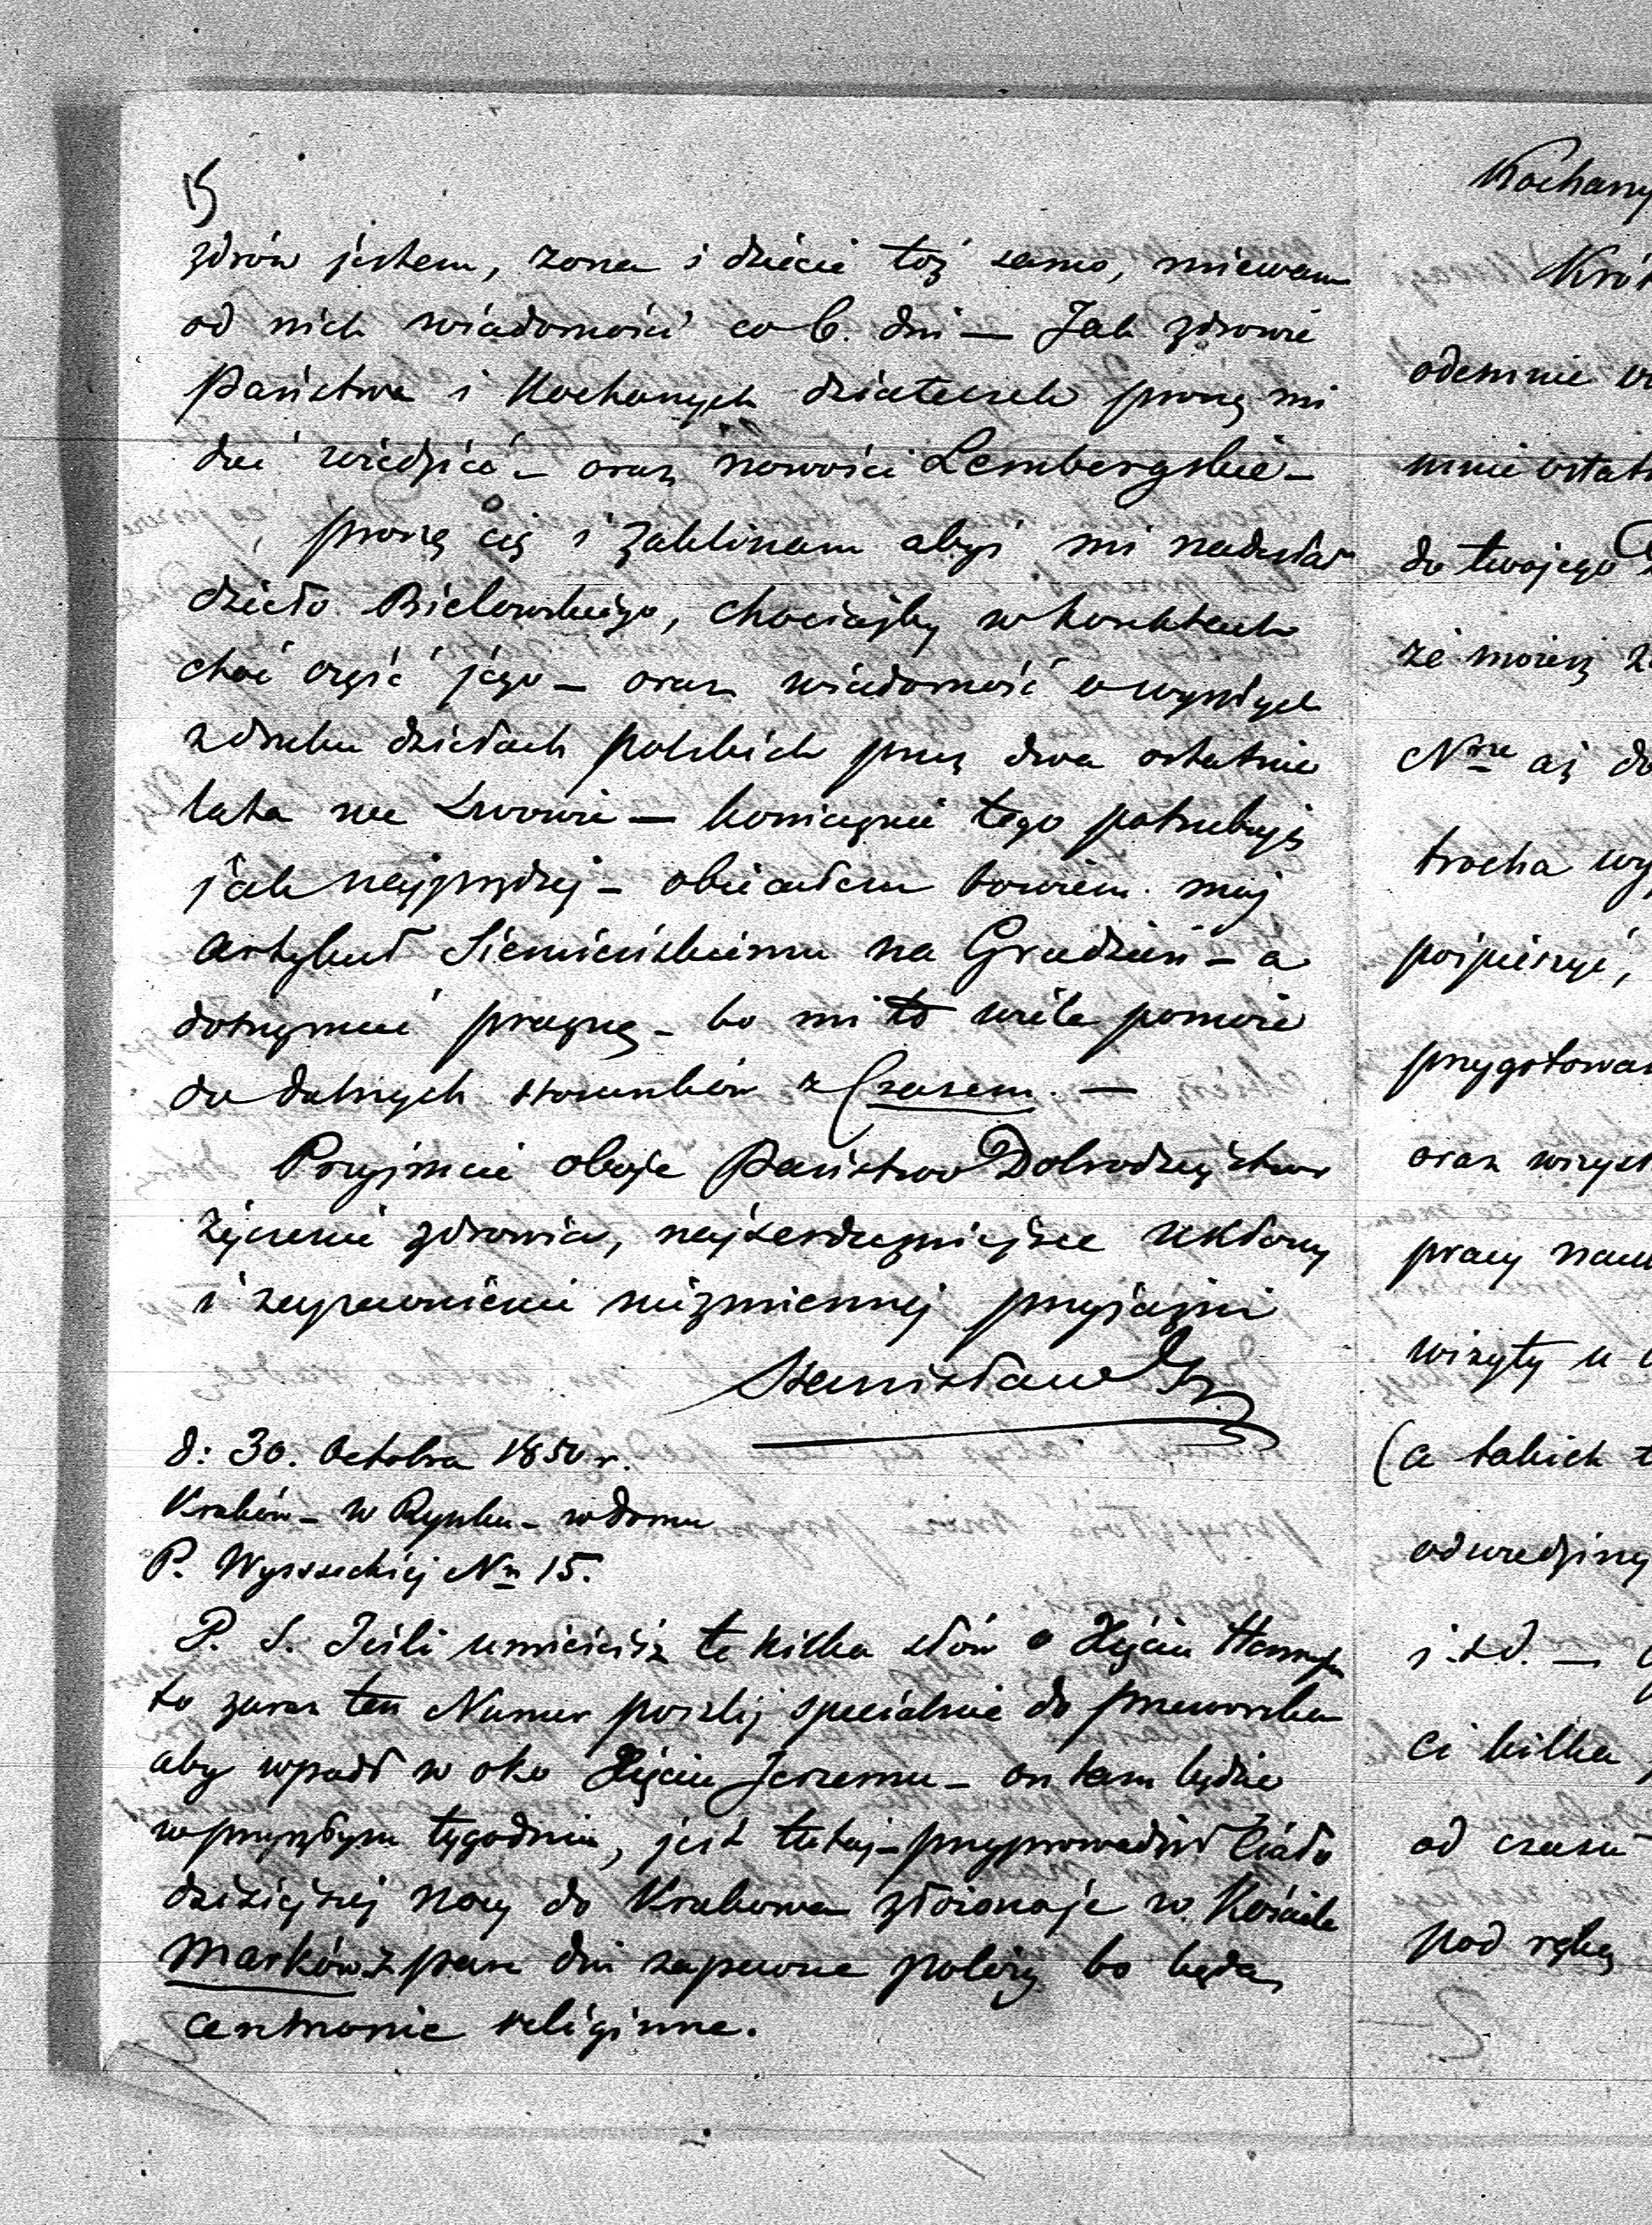 15
zdrów jestem, żona i dziecie toż samo, miewam
od nich wiadomości co 6. dni — Jak zdrowie
Państwa i Kochanych dziateczek proszę mi
dać wiedzieć — oraz nowości Lembergskie —
proszę cię i zaklinam abyś mi nadesłał
dzieło Bielowskiego, chociażby w korektach
choć część jego — oraz wiadomość o wyszłych
z druku dziełach polskich przez dwa ostatnie
lata we Lwowie — koniecznie tego potrzebuję
jak najprędzej — obiecałem bowiem mój
artykuł Siemieńskiemu na Grudzień — a
dotrzymać pragnę — bo mi to wiele pomoże
do dalszych stosunków z Czasem. —
Przyjmcie oboje Państwo Dobrodziejstwo
życzenie zdrowia, najserdeczniejsze ukłony
i zapewnienie niezmiennej przyjaźni
Stanisław
d: 30. Octobra 1850 r.
Kraków — w Rynku — w domu
P. Wyssockiej Nr 15.
P. S. Jeśli umieścisz te kilka słów o Xięciu Henryku
to zaraz ten Numer poszlij specialnie do Przeworska
aby wpadł w oko Xięciu Jerzemu — on tam będzie
w przyszłym tygodniu, jest tutaj — przyprowadził Ciało
dzisiejszej nocy do Krakowa złożono je w Kościele
Marków z parę dni zapewne poleży bo będą
ceremonie religijne.
Kochany
odemnie
mnie ostat
do twojego
że możesz
Nra aż do
trocha wy
pośpieszyć,
przygotowa
oraz wszyst
pracy nau
wizyty u
(a takich
odwiedziny
i t.d. —
ci kilka
od czasu
pod ręką